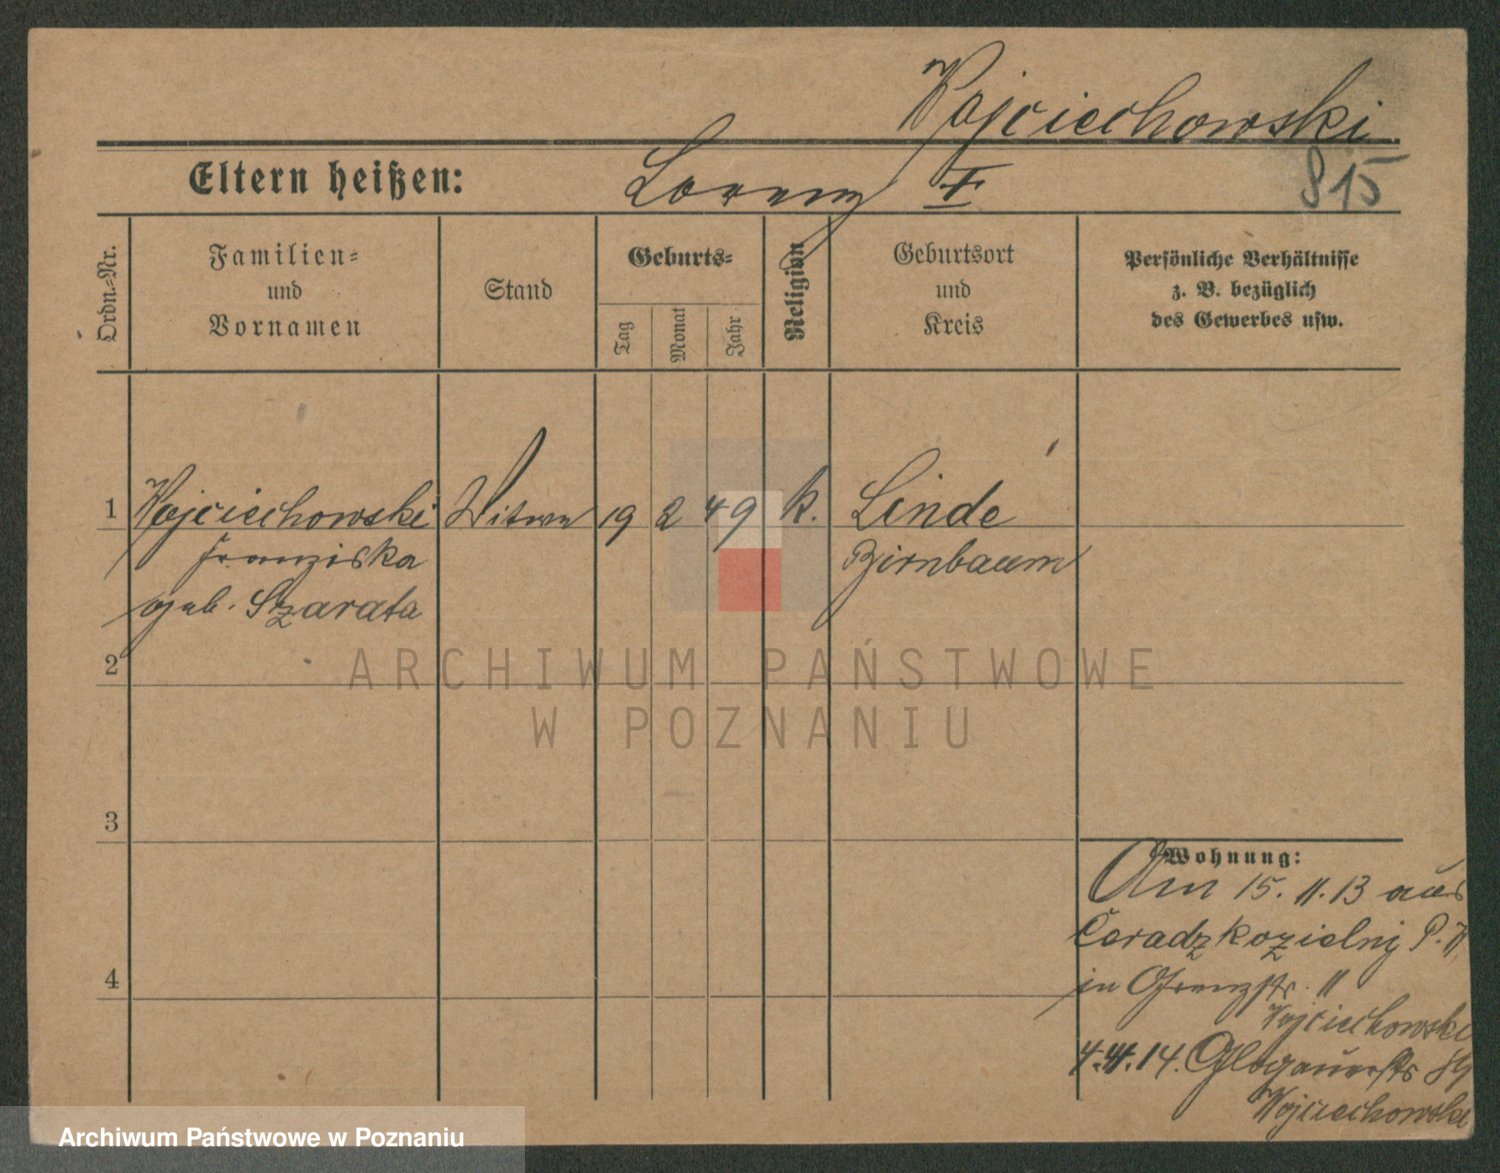 Wojciechowski
Eltern heißen: Lorenz †
815
Ordn.-Nr.
Familien-
und
Vornamen
Stand
Geburts-
Tag
Monat
Jahr
Religion
Geburtsort
und
Kreis
Persönliche Verhältnisse
z. B. bezüglich
des Gewerbes usw.
1 Wojciechowski Witwe 19 2 49 k. Linde
Franziska Birnbaum
geb. Szarata
2
ARCHIWUM PAŃSTWOWE
W POZNANIU
3
Wohnung:
Am 15. 11. 13 aus
Ceradz kozielny P. W
4
in Grenzstr. 11
Wojciechowski
14. Glogauerstr 89
Wojciechowski
Archiwum Państwowe w Poznaniu